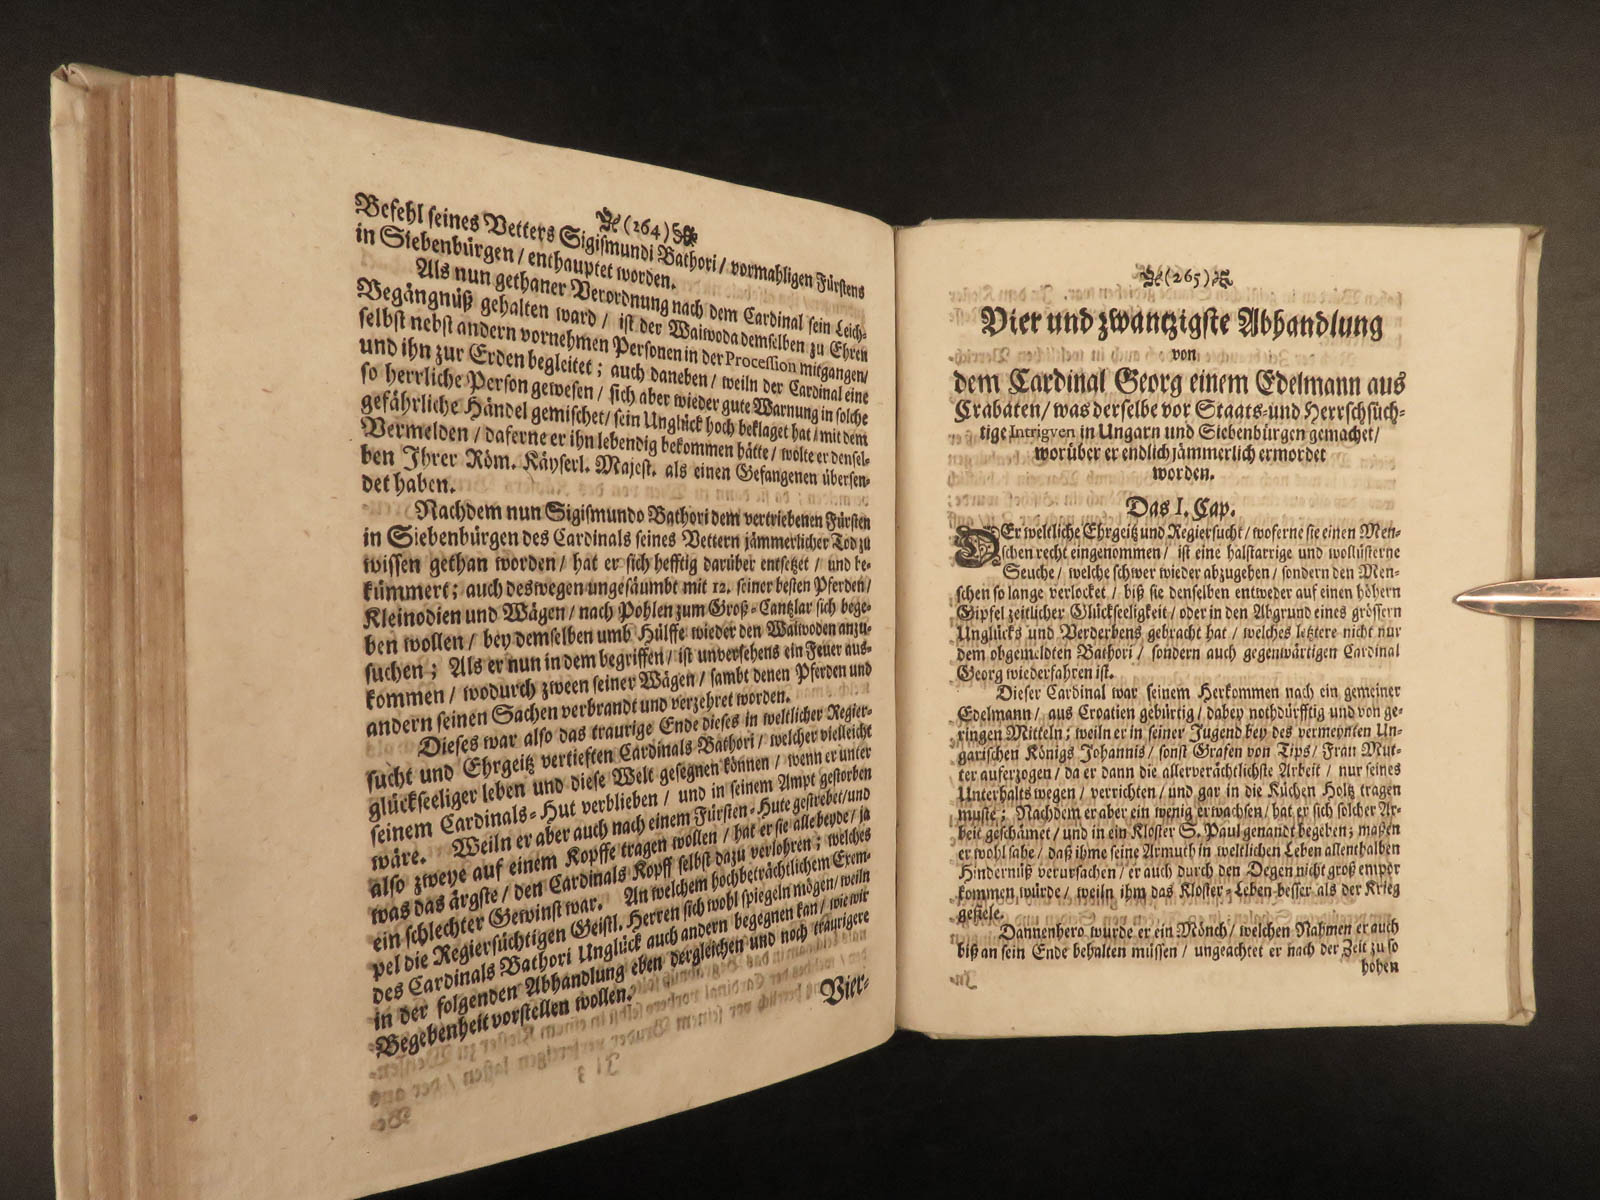 (264)
Befehl seines Vetters Sigismundi Bathori / vormahligen Fürstens
in Siebenbürgen / enthauptet worden.
Als nun gethaner Verordnung nach dem Cardinal sein Leich-
Begängnüß gehalten ward / ist der Waiwoda demselben zu Ehren
selbst nebst andern vornehmen Personen in der Procession mitgangen/
und ihn zur Erden begleitet ; auch daneben / weiln der Cardinal eine
so herrliche Person gewesen / sich aber wieder gute Warnung in solche
gefährliche Händel gemischet / sein Unglück hoch beklaget hat / mit dem
Vermelden / daferne er ihn lebendig bekommen hätte / wolte er densel-
ben Ihrer Röm. Käyserl. Majest. als einen Gefangenen übersen-
det haben.
Nachdem nun Sigismundo Bathori dem vertriebenen Fürsten
in Siebenbürgen des Cardinals seines Vettern jämmerlicher Tod zu
wissen gethan worden / hat er sich hefftig darüber entsetzet / und be-
kümmert ; auch deswegen ungesäumbt mit 12. seiner besten Pferden /
Kleinodien und Wägen / nach Pohlen zum Groß-Cantzlar sich bege-
ben wollen / bey demselben umb Hülffe wieder den Waiwoden anzu-
suchen ; Als er nun in dem begriffen / ist unversehens ein Feuer aus-
kommen / wodurch zween seiner Wägen / sambt denen Pferden und
andern seinen Sachen verbrandt und verzehret worden.
Dieses war also das traurige Ende dieses in weltlicher Regier-
sucht und Ehrgeitz vertiefften Cardinals Bathori / welcher vielleicht
glückseeliger leben und diese Welt gesegnen können / wenn er unter
seinem Cardinals-Hut verblieben / und in seinem Ampt gestorben
wäre. Weiln er aber auch nach einem Fürsten-Hute gestrebet / und
also zweye auf einem Kopffe tragen wollen / hat er sie alle beyde / ja
was das ärgste / den Cardinals Kopff selbst dazu verlohren ; welches
ein schlechter Gewinst war. An welchem hochbeträchtlichem Exem-
pel die Regiersüchtigen Geistl. Herren sich wohl spiegeln mögen / weiln
des Cardinals Bathori Unglück auch andern begegnen kan / wie wir
in der folgenden Abhandlung eben dergleichen und noch traurigere
Begebenheit vorstellen wollen.
Vier-
(265)
Vier und zwantzigste Abhandlung
von
dem Cardinal Georg einem Edelmann aus
Crabaten / was derselbe vor Staats- und Herrschsüch-
tige Intriguen in Ungarn und Siebenbürgen gemachet /
worüber er endlich jämmerlich ermordet
worden.
Das I. Cap.
DEr weltliche Ehrgeitz und Regiersucht / woferne sie einen Men-
schen recht eingenommen / ist eine halstarrige und wollüsterne
Seuche / welche schwer wieder abzugeben / sondern den Men-
schen so lange verlocket / biß sie denselben entweder auf einen höhern
Gipfel zeitlicher Glückseeligkeit / oder in den Abgrund eines grössern
Unglücks und Verderbens gebracht hat / welches letztere nicht nur
dem obgemeldten Bathori / sondern auch gegenwärtigen Cardinal
Georg wiederfahren ist.
Dieser Cardinal war seinem Herkommen nach ein gemeiner
Edelmann / aus Croatien gebürtig / dabey nothdürfftig und von ge-
ringen Mitteln ; weiln er in seiner Jugend bey des vermeynten Un-
garischen Königs Johannis / sonst Grafen von Tips / Frau Mut-
ter auferzogen / da er dann die allerverächtlichste Arbeit / nur seines
Unterhalts wegen / verrichten / und gar in die Küchen Holtz tragen
muste ; Nachdem er aber ein wenig erwachsen / hat er sich solcher Ar-
beit geschämet / und in ein Kloster S. Paul genandt begeben ; maßen
er wohl sahe / daß ihme seine Armuth in weltlichen Leben allenthalben
Hindernüß verursachen / er auch durch den Degen nicht groß empor
kommen würde / weiln ihm das Kloster-Leben besser als der Krieg
gefiele.
Dannenhero wurde er ein Mönch / welchen Nahmen er auch
biß an sein Ende behalten müssen / ungeachtet er nach der Zeit zu so
hohen